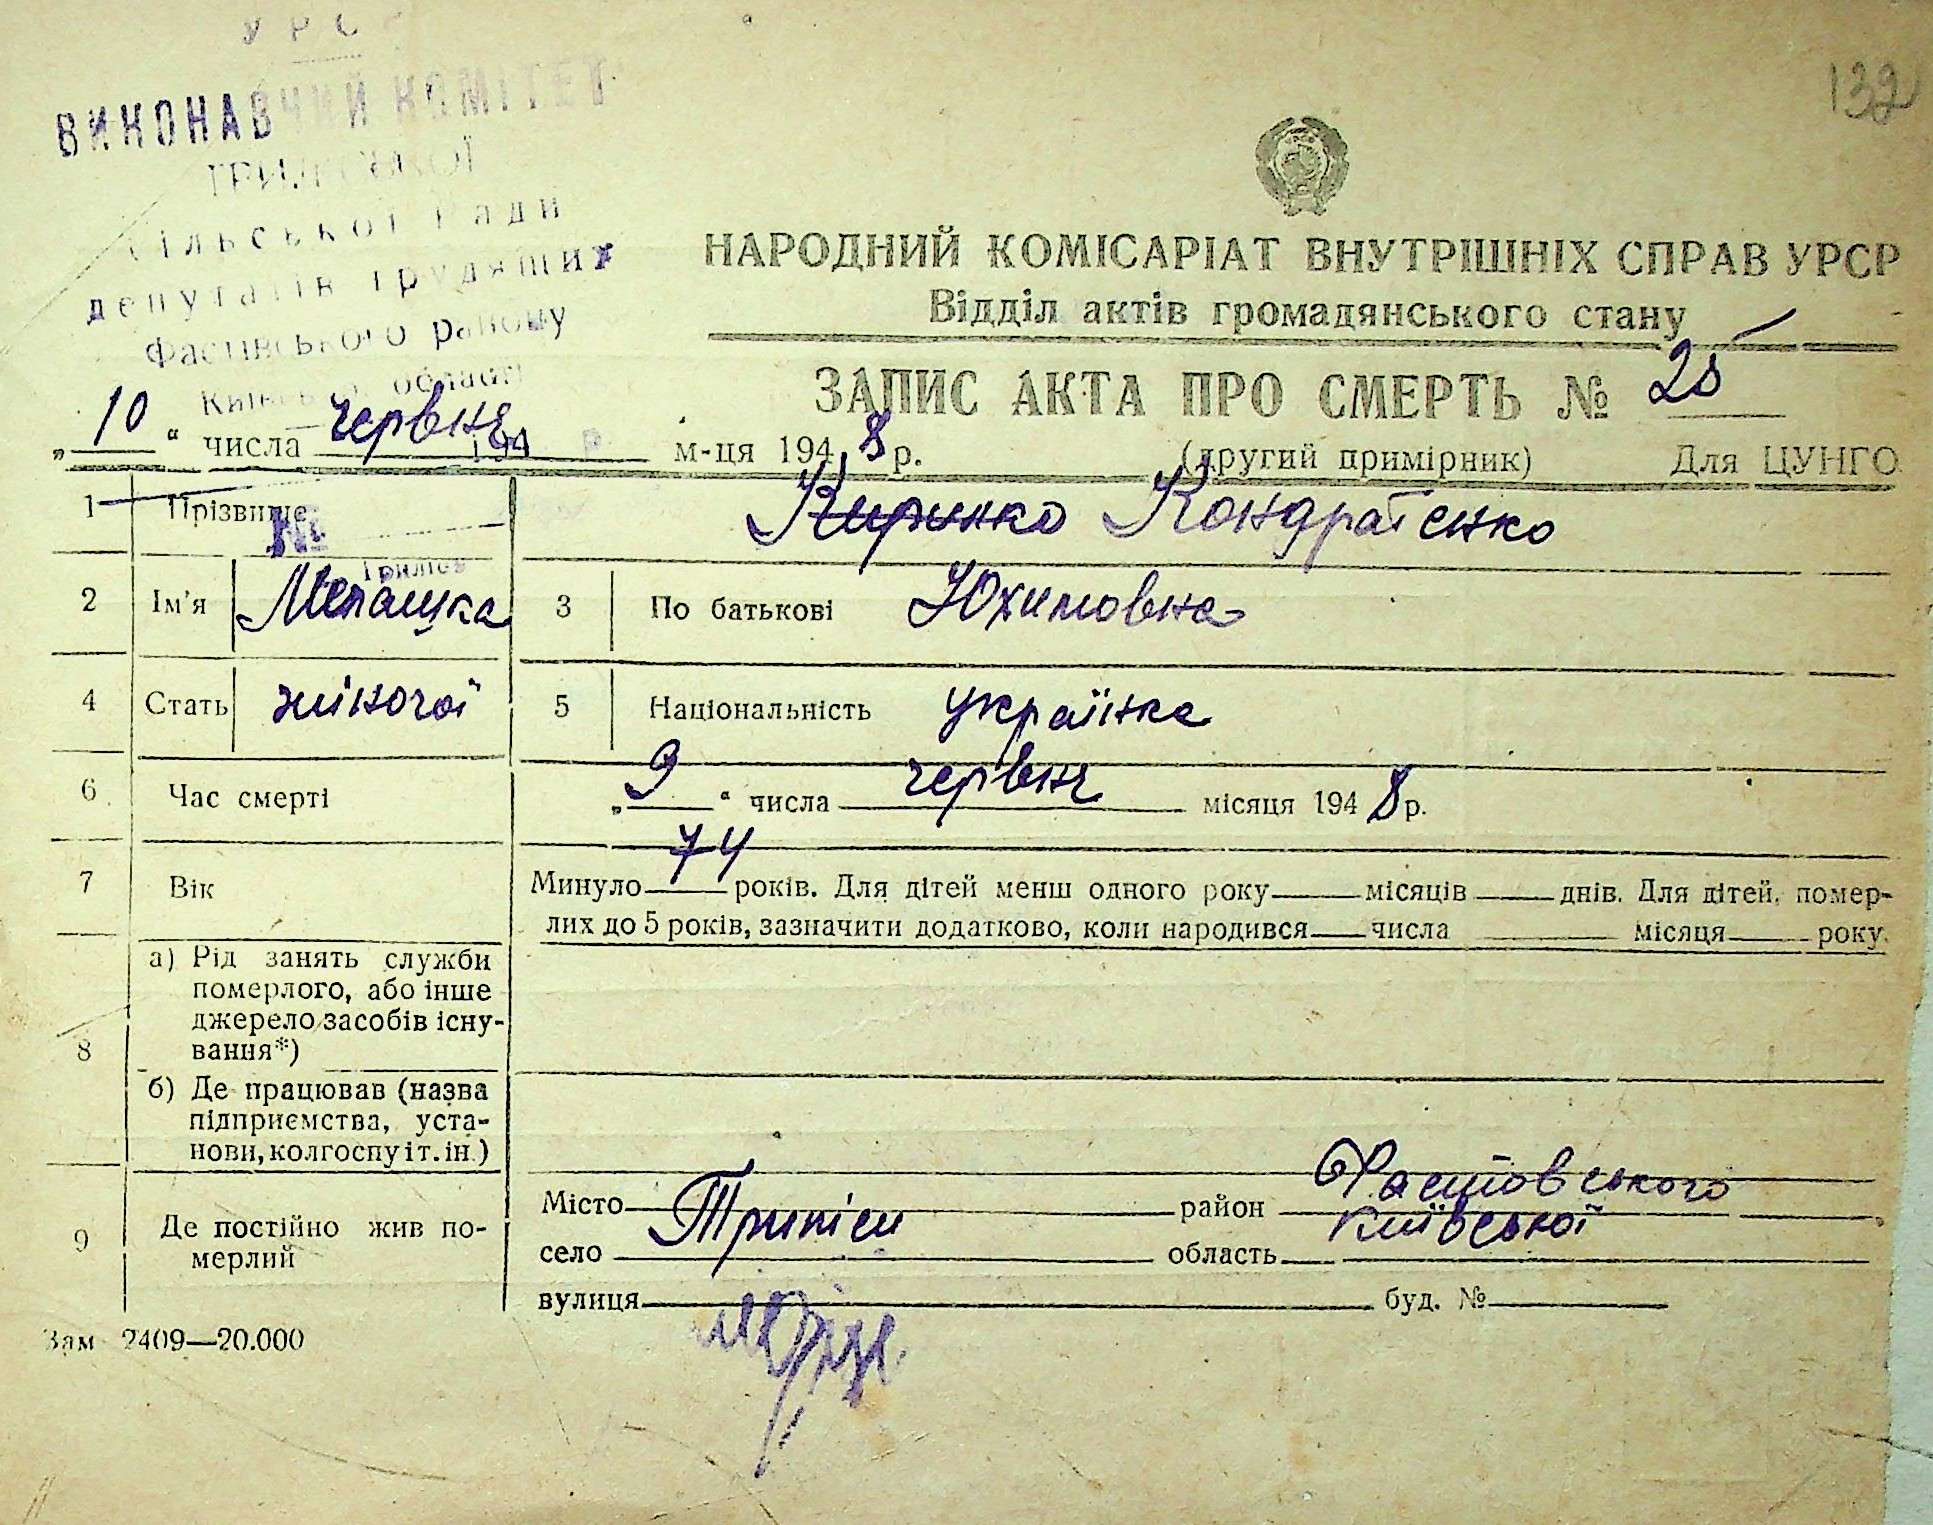 УРС
132
ВИКОНАВЧИЙ КОМІТЕТ
сільської Ради
депутатів трудящих
Фастівського району
Київської області
НАРОДНИЙ КОМІСАРІАТ ВНУТРІШНІХ СПРАВ УРСР
Відділ актів громадянського стану
ЗАПИС АКТА ПРО СМЕРТЬ №
„10“ числа червня 194 р. м-ця 1948 р. (другий примірник) Для ЦУНГО
1 Прізвище Киринко Кондратенко
№
2 Ім'я Мелашка 3 По батькові Юхимовна
4 Стать жіночої 5 Національність українка
6 Час смерті „9“ числа червня місяця 1948 р.
7 Вік Минуло 74 років. Для дітей менш одного року місяців днів. Для дітей, помер-
лих до 5 років, зазначити додатково, коли народився числа місяця року.
8 а) Рід занять служби
померлого, або інше
джерело засобів існу-
вання*)
б) Де працював (назва
підприємства, уста-
нови, колгоспу і т. ін.)
9 Де постійно жив по-
мерлий
Місто район Фастовського
село область Київської
вулиця буд. №
Зам 2409—20.000